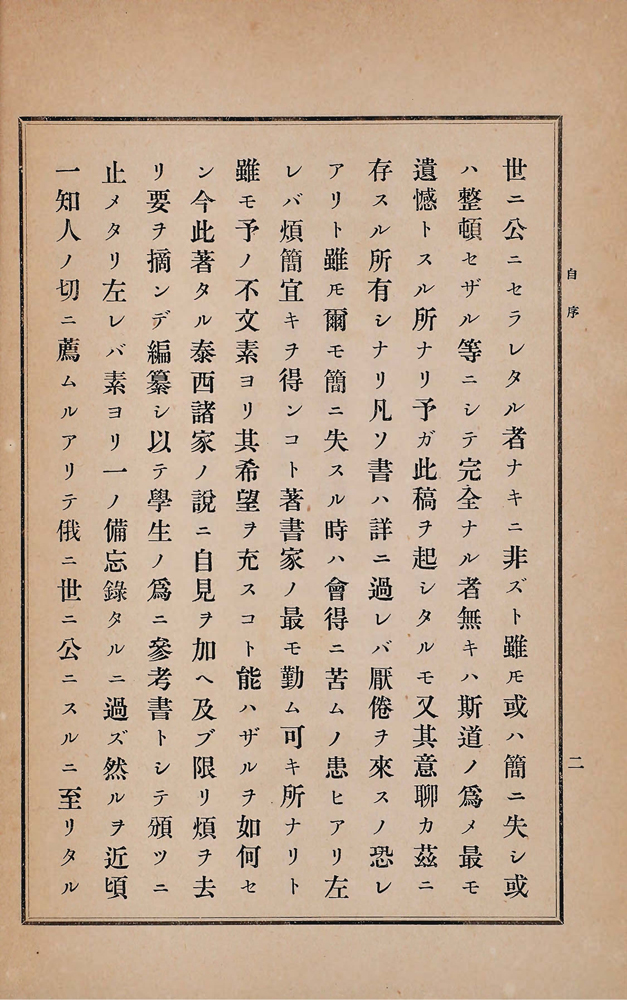 自序
二
世ニ公ニセラレタル者ナキニ非ズト雖モ或ハ簡ニ失シ或
ハ整頓セザル等ニシテ完全ナル者無キハ斯道ノ爲メ最モ
遺憾トスル所ナリ予ガ此稿ヲ起シタルモ又其意聊カ茲ニ
存スル所有シナリ凡ソ書ハ詳ニ過レバ厭倦ヲ來スノ恐レ
アリト雖モ爾モ簡ニ失スル時ハ會得ニ苦ムノ患ヒアリ左
レバ煩簡宜キヲ得ンコト著書家ノ最モ勤ム可キ所ナリト
雖モ予ノ不文素ヨリ其希望ヲ充スコト能ハザルヲ如何セ
ン今此著タル泰西諸家ノ說ニ自見ヲ加ヘ及ブ限リ煩ヲ去
リ要ヲ摘ンデ編纂シ以テ學生ノ爲ニ參考書トシテ頒ツニ
止メタリ左レバ素ヨリ一ノ備忘錄タルニ過ズ然ルヲ近頃
一知人ノ切ニ薦ムルアリテ俄ニ世ニ公ニスルニ至リタル